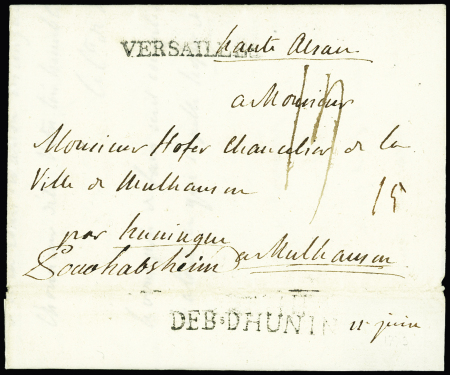 VERSAILLES haute Alsace
a Monsieur
Monsieur Hofer Chancelier de la
Ville de Mulhausen
15
par huningue
a Mulhausen
DEB·DHUNIN 11 juin